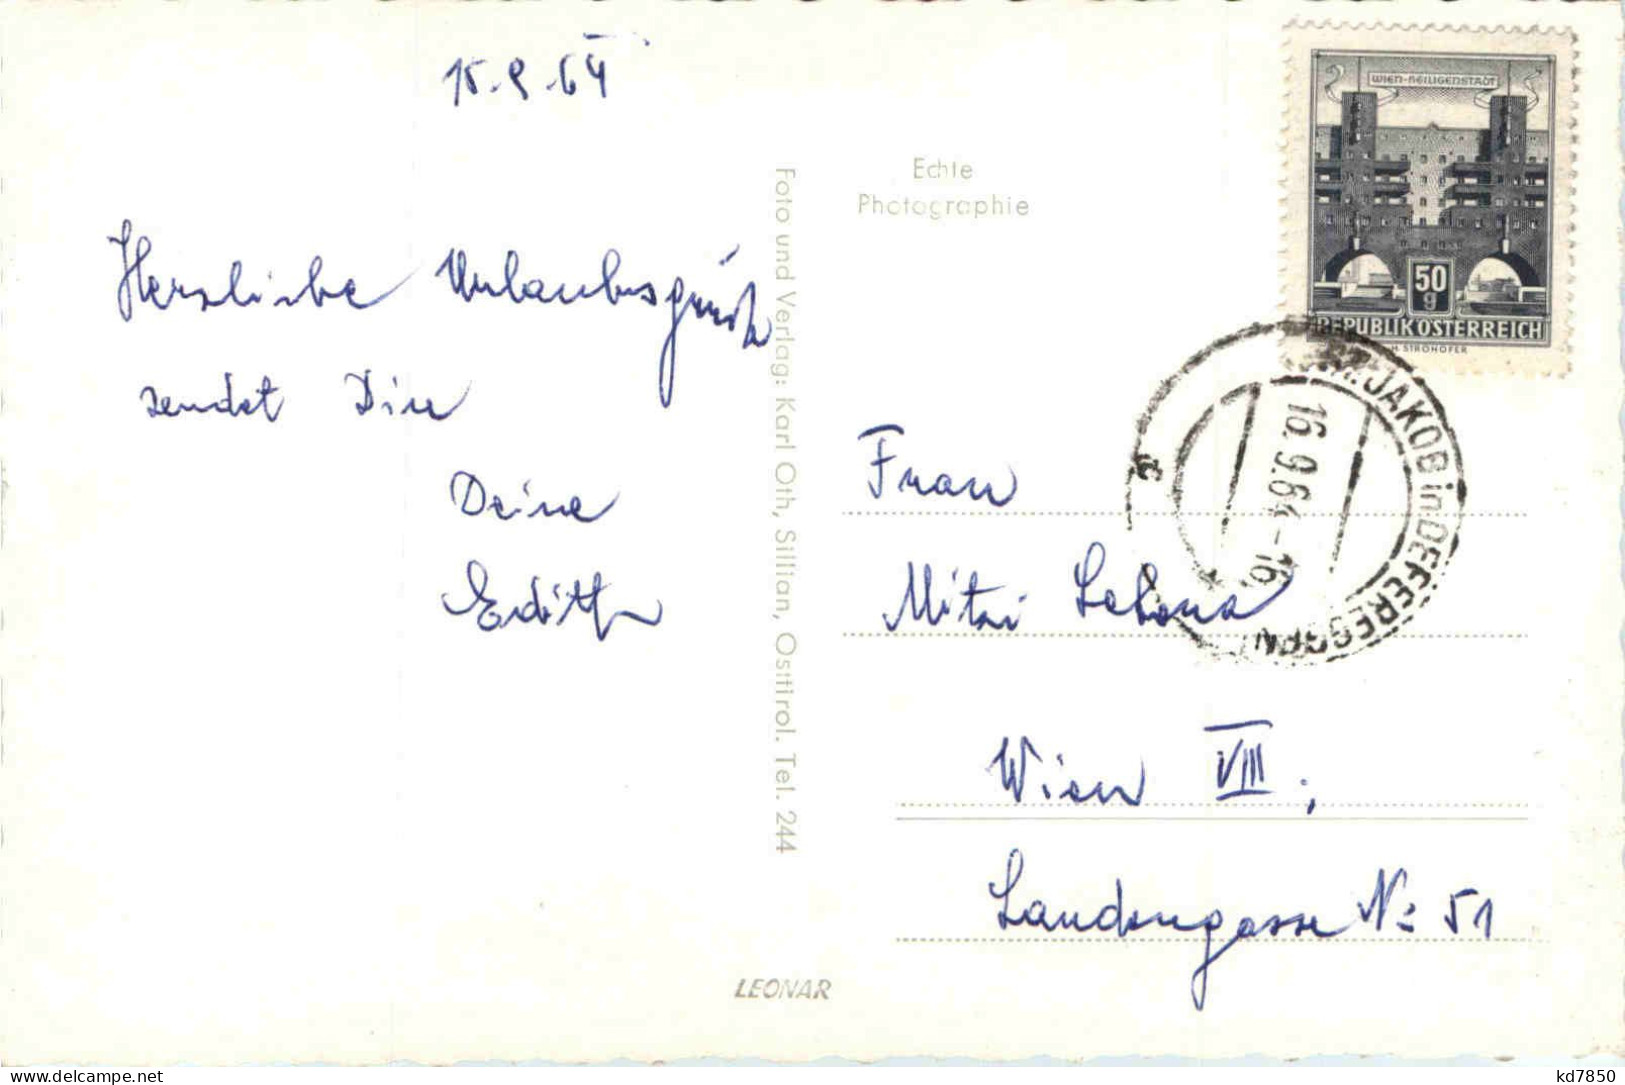 15.9.64
Herzliche Urlaubsgrüße
sendet Dir
Deine
Edith
Foto und Verlag: Karl Oth, Sillian, Osttirol. Tel. 244
LEONAR
Echte
Photographie
WIEN-HEILIGENSTADT
50
g
REPUBLIK ÖSTERREICH
H. STROHOFER
ST. JAKOB in DEFEREGGEN
16.9.64-16
Frau
Mitzi
Wien VIII.,
Laudongasse No 51
kd7850